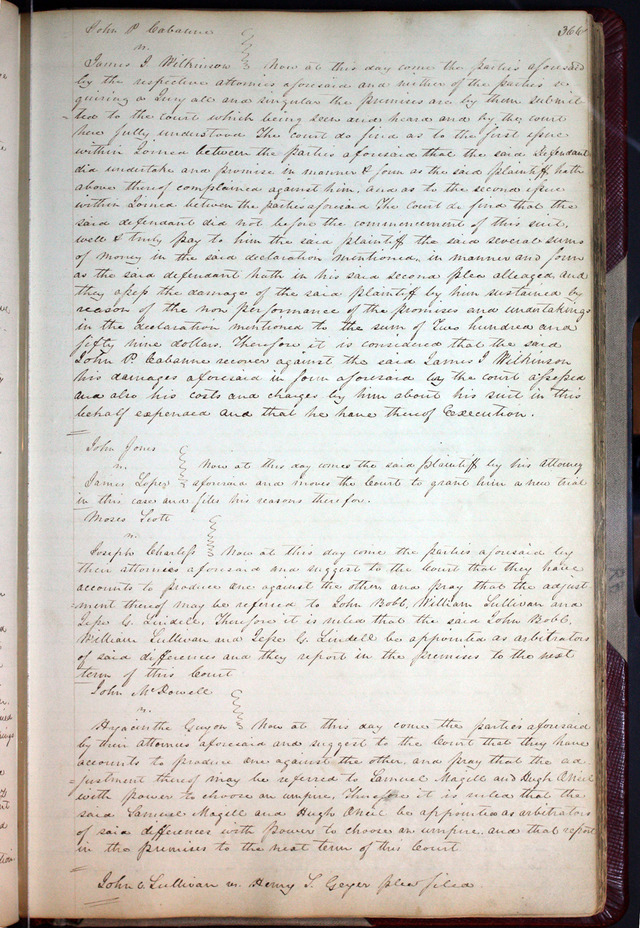 John P Cabanne 366
vs.
James J Wilkinson Now at this day come the parties aforesaid
by the respective attornies aforesaid and neither of the parties re
quiring a Jury all and singular the premises are by them submit
ted to the court which being seen and heard and by the court
here fully understood The court do find as to the first issue
within Joined between the parties aforesaid that the said Defendant
did undertake and promise in manner & form as the said plaintiff hath
above thereof complained against him. and as to the second issue
within Joined between the parties aforesaid The Court do find that the
said defendant did not before the commencement of this suit,
well & truly pay to him the said plaintiff the said several sums
of money in the said declaration mentioned, in manner and form
as the said defendant hath in his said second plea alleaged, and
they assess the damage of the said plaintiff by him sustained by
reason of the non performance of the promises and undertakings
in the declaration mentioned to the sum of Two hundred and
fifty nine dollars. Therefore it is considered that the said
John P. Cabanne recover against the said James J Wilkinson
his damages aforesaid in form aforesaid by the court assessed
and also his costs and charges by him about his suit in this
behalf expended and that he have thereof Execution.
John Jones
vs. Now at this day comes the said plaintiff by his attorney
James Lopez aforesaid and moves the Court to grant him a new trial
in this case and files his reasons therefor.
Moses Scott
vs.
Joseph Charless Now at this day come the parties aforesaid by
their attornies aforesaid and suggest to the Court that they have
accounts to produce one against the other and pray that the adjust-
ment thereof may be referred to John Bobb, William Sullivan and
Jesse G. Lindell, Therefore it is ruled that the said John Bobb,
William Sullivan and Jesse G. Lindell be appointed as arbitrators
of said differences and they report in the premises to the next
term of this Court
John McDowell
vs.
Hyacinthe Guyon Now at this day come the parties aforesaid
by their attornies aforesaid and suggest to the Court that they have
accounts to produce one against the other, and pray that the ad
=justment thereof may be referred to Samuel Magill and Hugh ONeil
with power to choose an umpire, Therefore it is ruled that the
said Samuel Magill and Hugh ONeil be appointed as arbitrators
of said differences with power to choose an umpire. and that report
in the premises to the next term of this Court
John C Sullivan vs. Henry S. Geyer plea filed